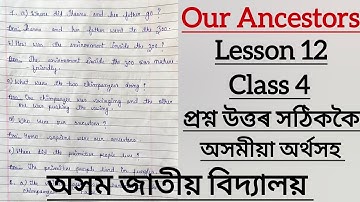 1. a) Where did Manas and his father go ?
Ans. Manas and his father went to the zoo.
b) How was the environment inside the zoo ?
Ans. The environment inside the zoo was nature friendly.
c) What were the two chimpanzees doing ?
Ans. One chimpanzee was swinging and the other one was pushing the swing.
d) Who were our ancestors ?
Ans. Homo sapiens were our ancestors.
e) Where did the primitive people live ?
Ans. The primitive people lived in
Our Ancestors
Lesson 12
Class 4
প্ৰশ্ন উত্তৰ সঠিককৈ
অসমীয়া অৰ্থসহ
অসম জাতীয় বিদ্যালয়